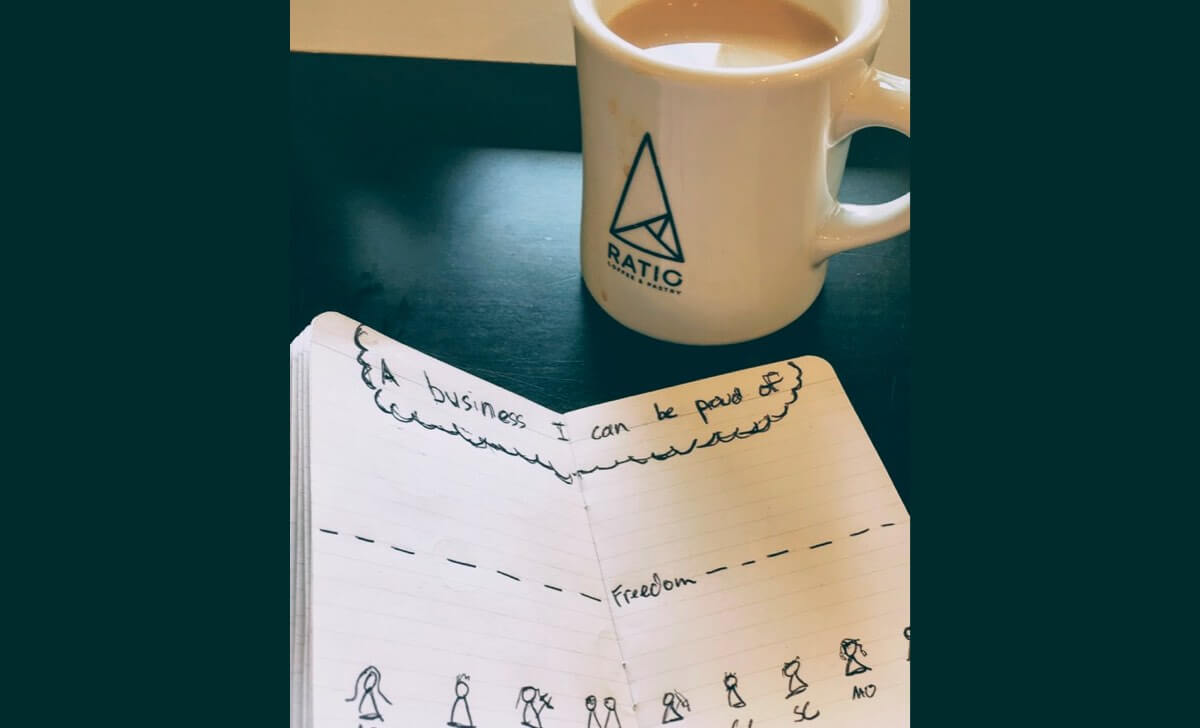 RATIO
COFFEE & PASTRY
A business I can be proud of
Freedom
SC
MO